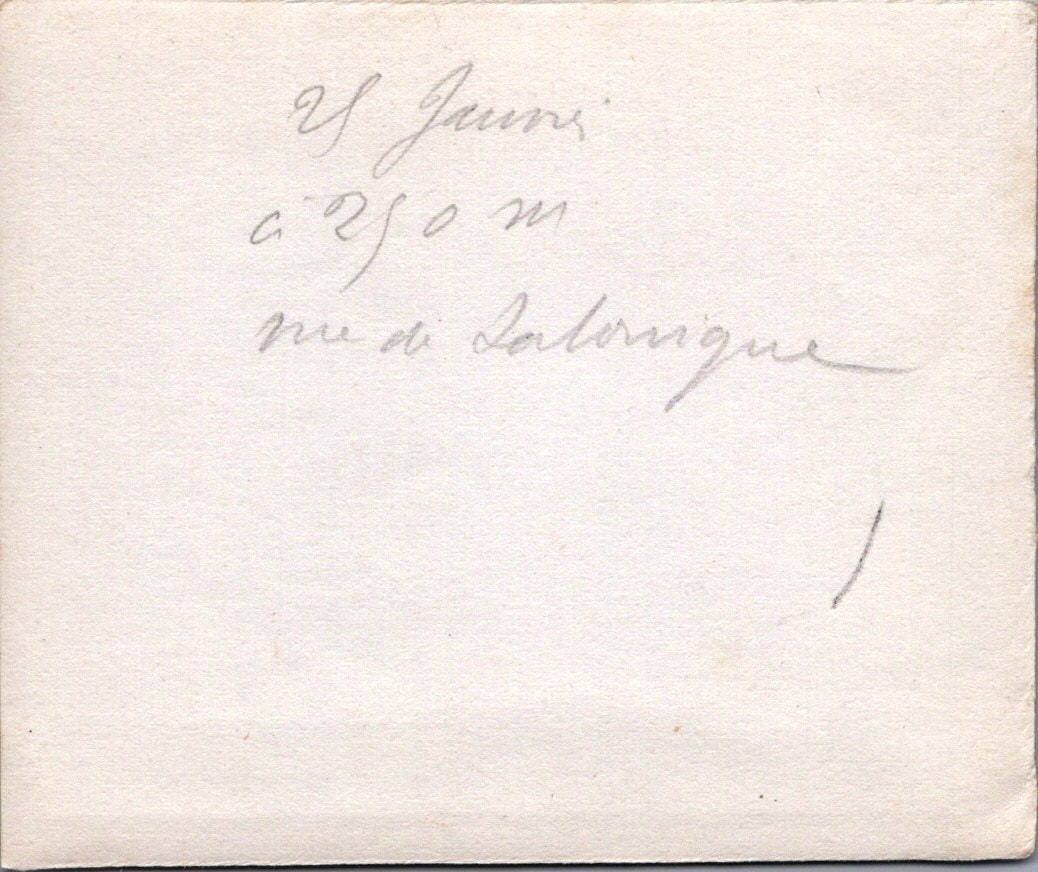 25 Janvier
à 250 m
vue de Salonique